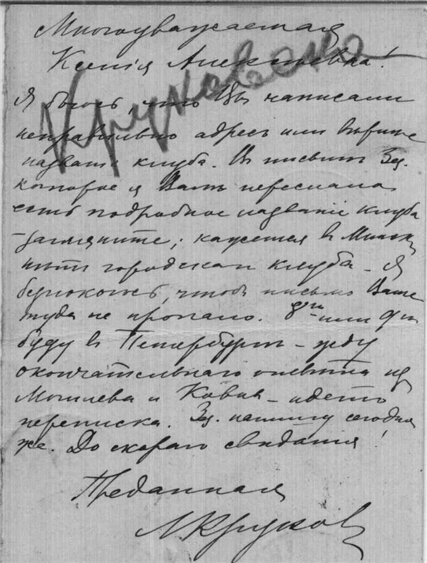 Многоуважаемая
Ксенія Алексѣевна!
Круковская
Я боюсь что Вы написали
неправильно адресъ или вѣрнѣе
названіе клуба. Въ письмѣ
которое я Вамъ переслала
есть подробное названіе клуба
- загляните; кажется в Минскѣ
нѣтъ городского клуба - Я
безпокоюсь, чтобы письмо Ваше
туда не пропало. 8го или 9го
буду в Петербургѣ - жду
окончательнаго отвѣта из
Могилева и Ковно - идетъ
переписка. напишу сегодня
же. До скораго свиданія!
Преданная
Л. Круков